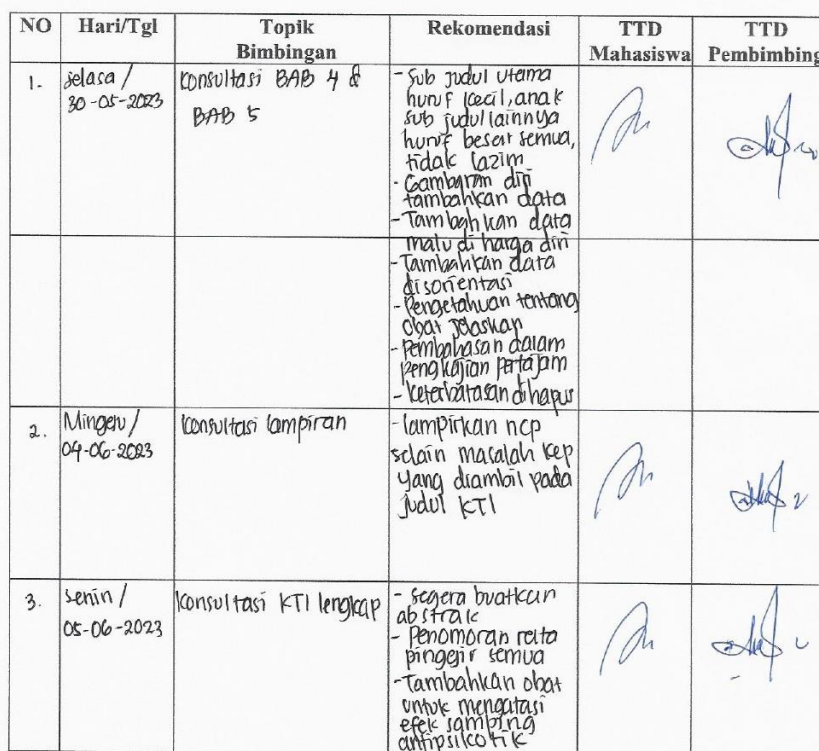 NO Hari/Tgl Topik Bimbingan Rekomendasi TTD Mahasiswa TTD Pembimbing
1. Selasa / 30-05-2023
Konsultasi BAB 4 &
BAB 5
- Sub judul utama
huruf kecil, anak
sub judul lainnya
huruf besar semua,
tidak lazim
- Gambaran diri
tambahkan data
- Tambahkan data
malu di harga diri
- Tambahkan data
disorientasi
- Pengetahuan tentang
obat jelaskan
- Pembahasan dalam
pengkajian pertajam
- Keterbatasan dihapus
2. Minggu / 04-06-2023
Konsultasi lampiran
- lampirkan ncp
selain masalah kep
yang diambil pada
judul KTI
3. Senin / 05-06-2023
Konsultasi KTI lengkap
- Segera buatkan
abstrak
- Penomoran rata
pinggir semua
- Tambahkan obat
untuk mengatasi
efek samping
antipsikotik